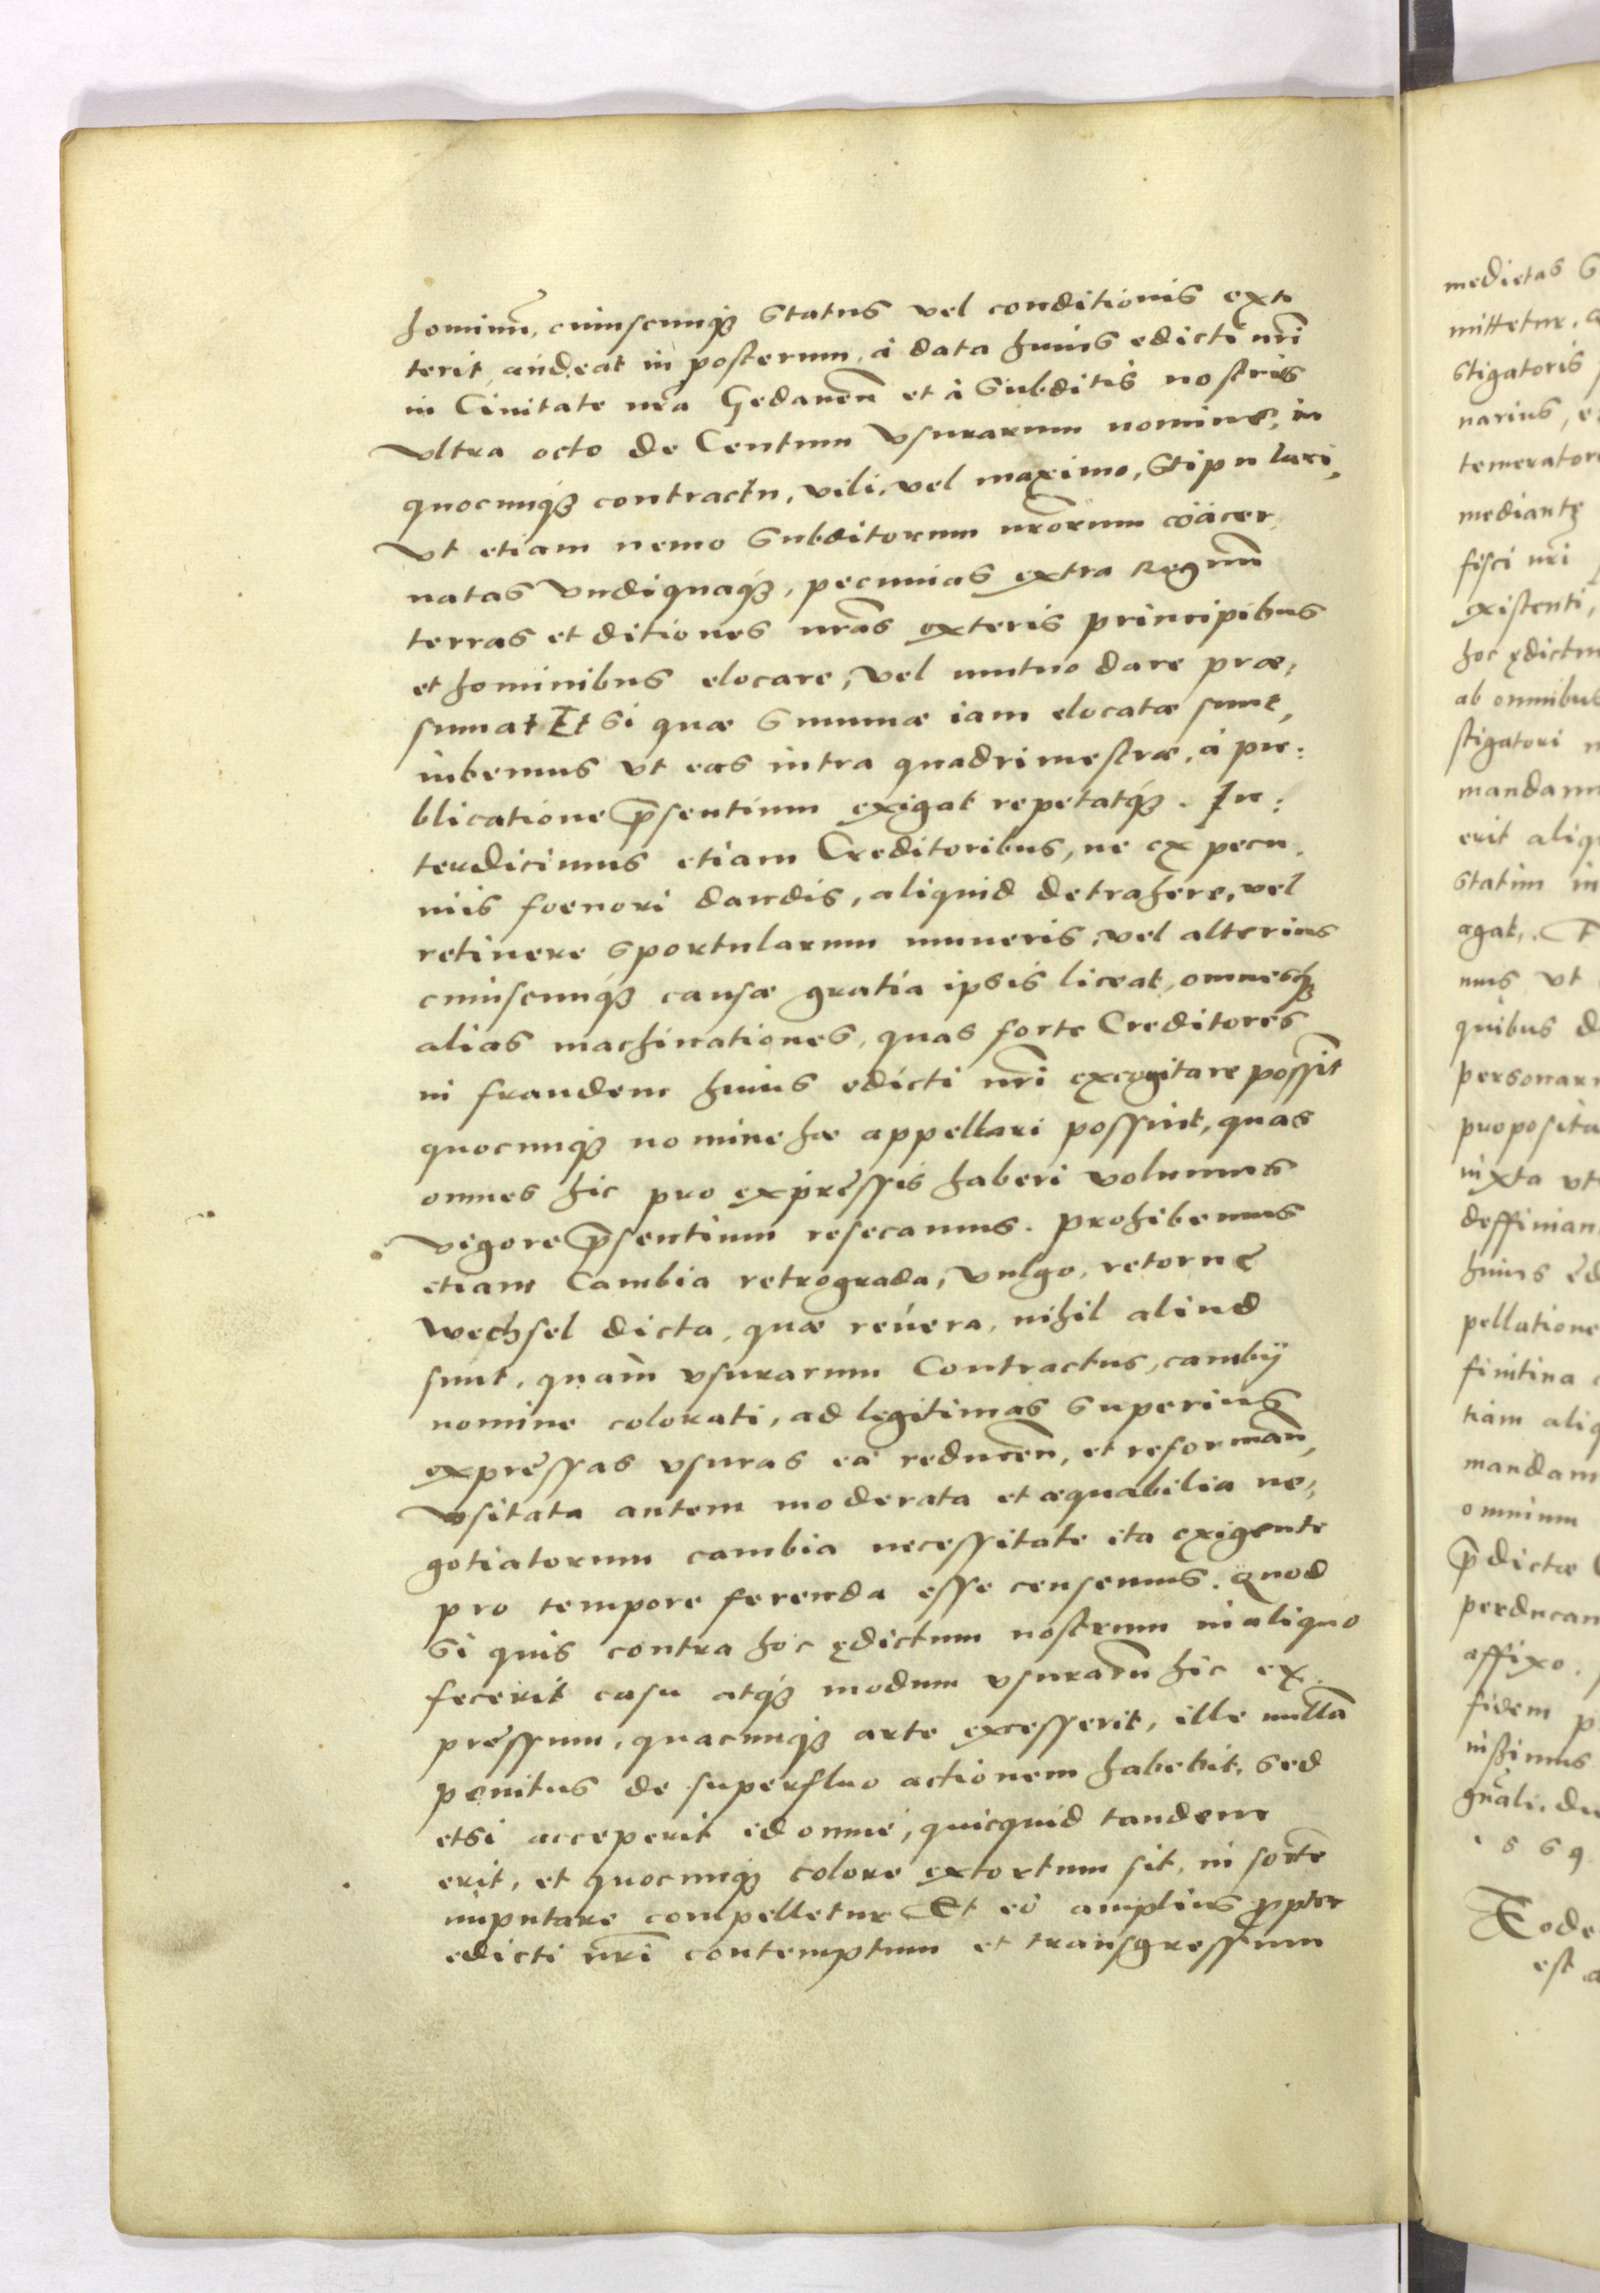 hominū, cuiuscunqꝫ status vel conditionis exti
terit, audeat in posterum, à data huius edicti nr̄i
in Ciuitate nr̄a Gedanen̄ et à Subditis nostris
vltra octo de Centum vsurarum nomine, in
quocunqꝫ contractu, vili, vel maximo, stipulari,
Vt etiam nemo Subditorum nr̄orum coacer
natas vndiquaqꝫ, pecunias extra Regnum
terras et ditiones nr̄as exteris principibus
et hominibus elocare, vel mutuo dare præ:
sumat Et si quæ summæ iam elocatæ sunt,
iubemus vt eas intra quadrimestræ, à pu:
blicatione p̄sentium exigat repetatqꝫ. In:
terdicimus etiam Creditoribus, ne ex pecu
niis foenori dandis, aliquid detrahere, vel
retinere sportularum muneris, vel alterius
cuiuscunqꝫ causæ gratia ipsis liceat, omnesqꝫ
alias machinationes, quas forte Creditores
in fraudem huius edicti nr̄i excogitare possint
quocunqꝫ nomine hæ appellari possint, quas
omnes hic pro expressis haberi volumus
vigore p̄sentium resecamus. prohibemus
etiam Cambia retrograda, vulgo, retorne
wechsel dicta, quæ reuera, nihil aliud
sunt, quàm vsurarum Contractus, cambij
nomine colorati, ad legitimas superius
expressas vsuras ea reducen̄, et reforman̄,
vsitata autem moderata et æquabilia ne,
gotiatorum cambia necessitate ita exigente
pro tempore ferenda esse censemus. Quod
si quis contra hoc ędictum nostrum in aliquo
fecerit casu atqꝫ modum vsurarū hic ex
pressum, quacunqꝫ arte excesserit, ille nullā
penitus de superfluo actionem habebit, sed
etsi acceperit id omne, quicquid tandem
erit, et quocunqꝫ colore extortum sit, in sortē
imputare compelletur Et eò amplius ꝓpter
edicti nr̄i contemptum et transgressum
medietas
mittetur,
stigatoris
narius,
mediante
fisci nr̄i
existenti,
ab omnibus
stigatori
erit
statim in
agat,
mus vt
quibus
iuxta
huius
tiam
omnium
p̄dictæ
affixo.
fidem
569
est